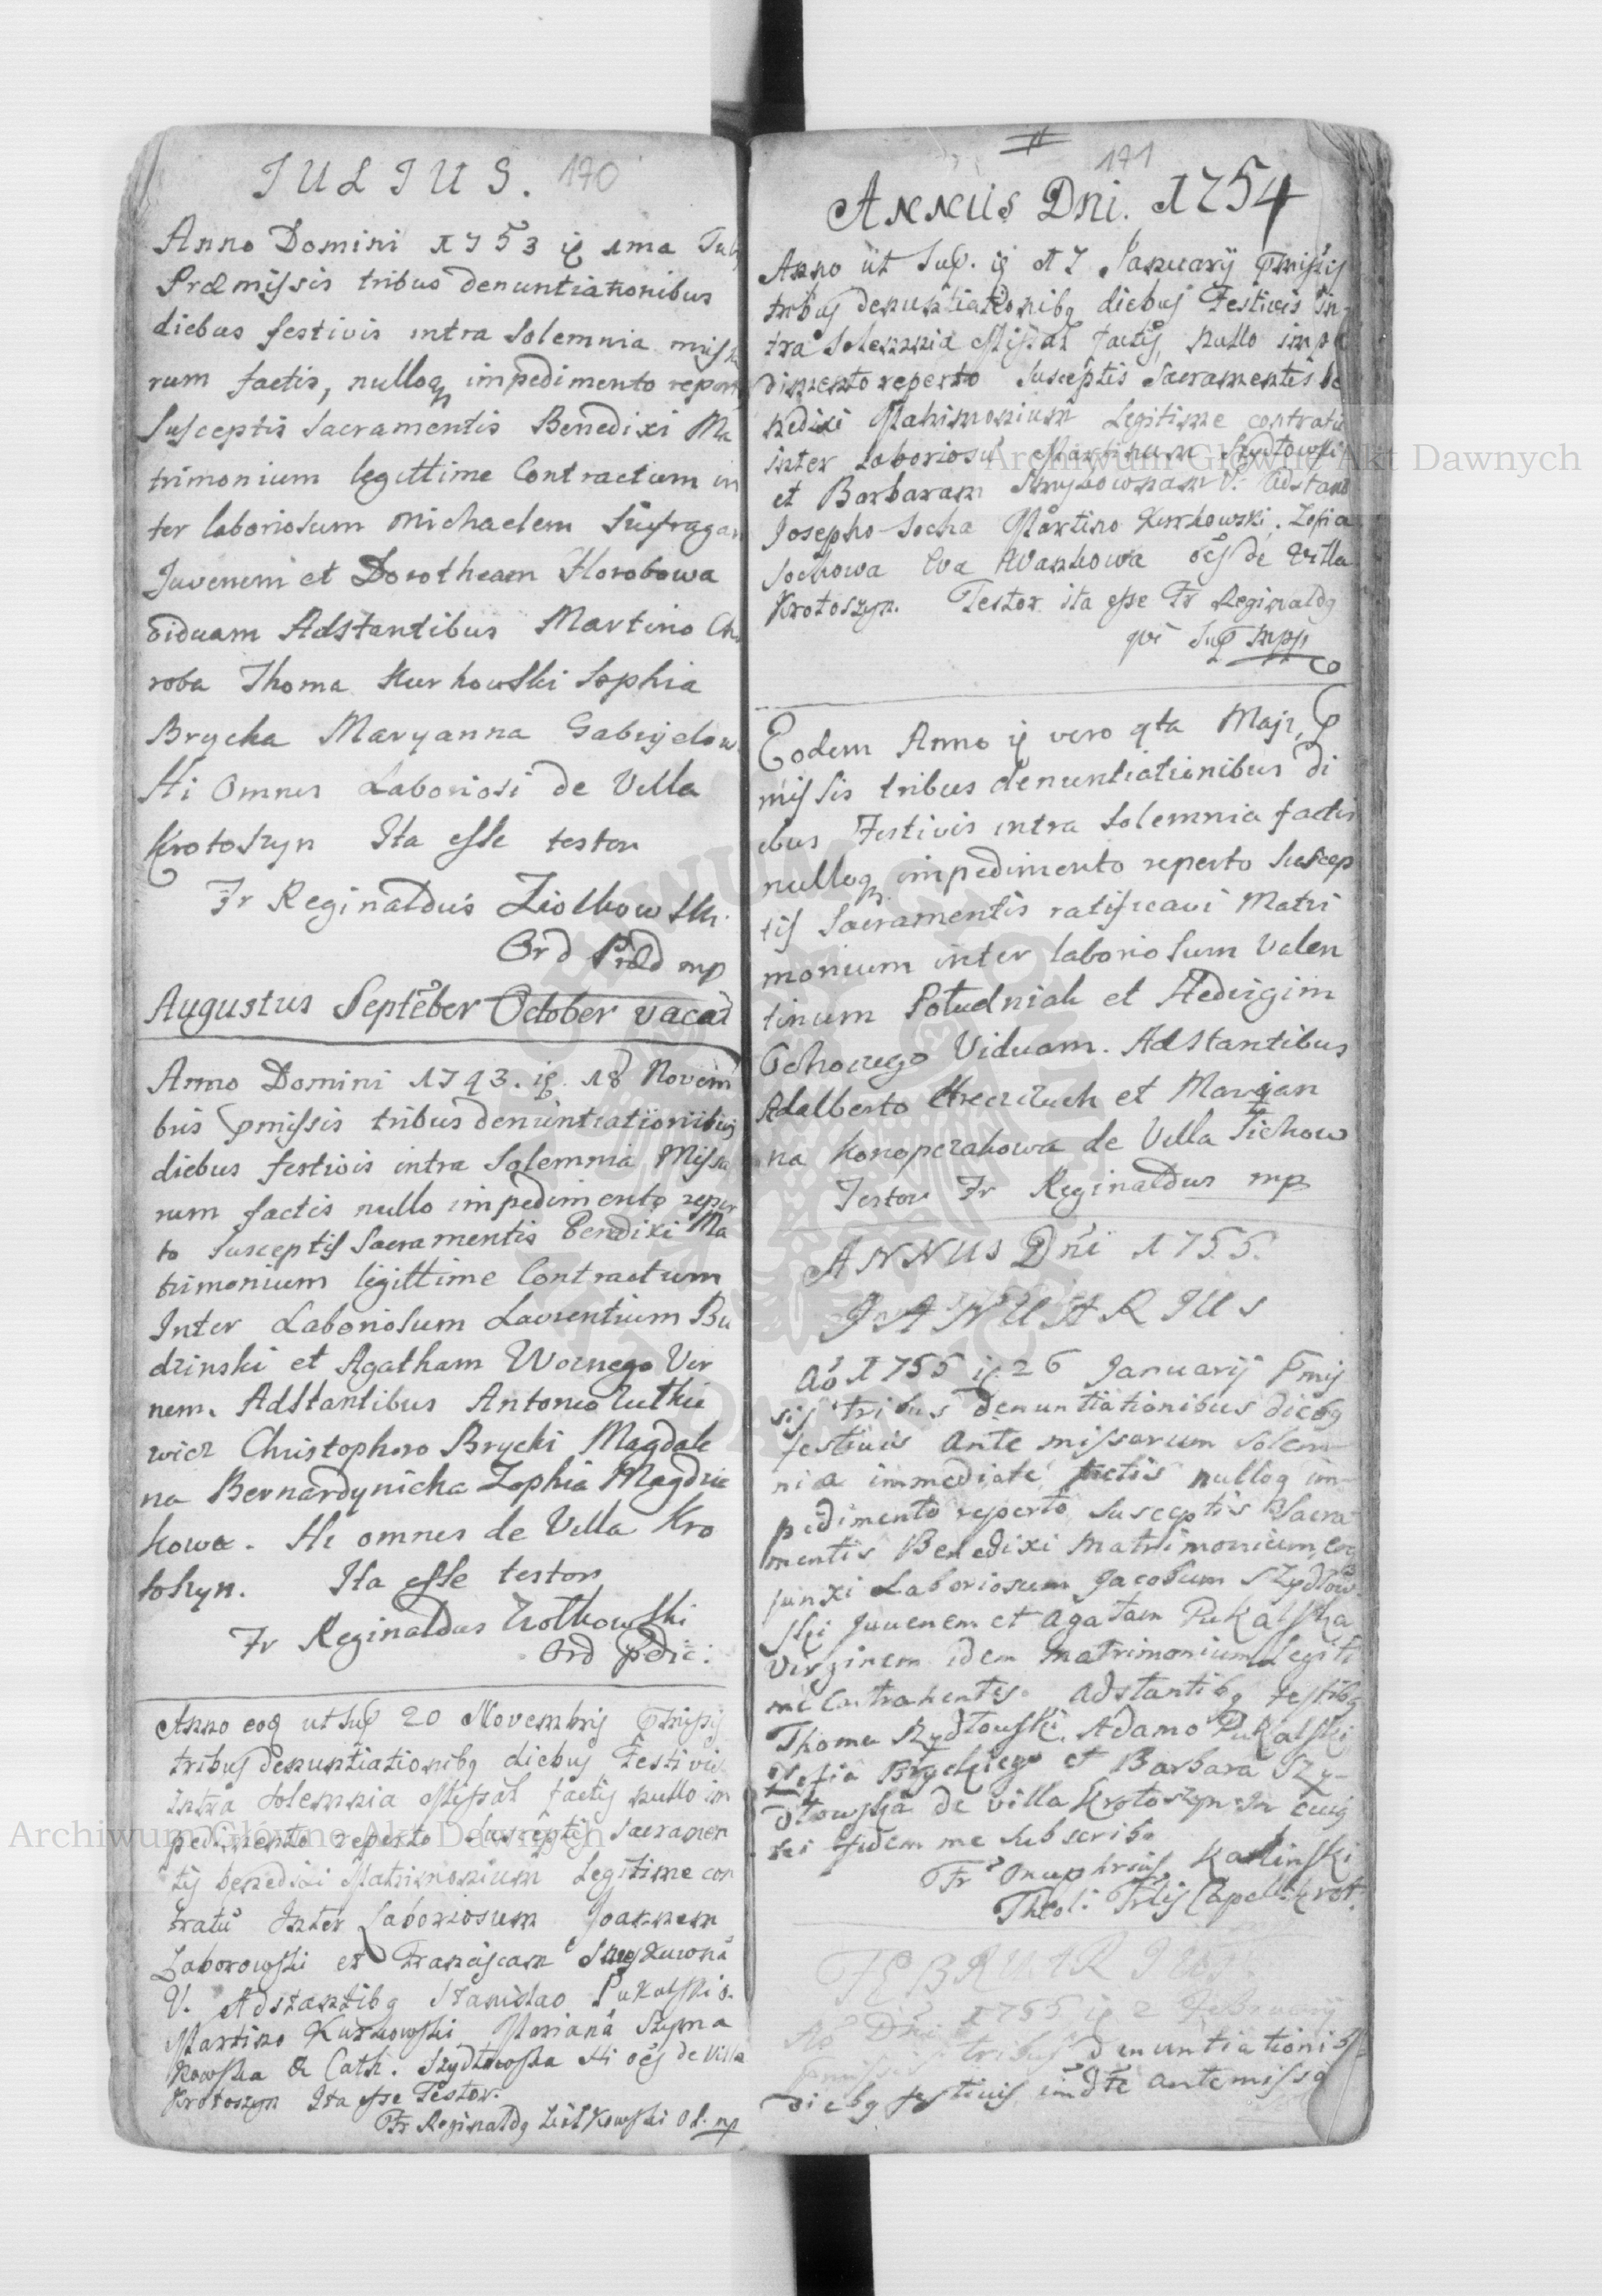 JULIUS. 170
Anno Domini 1753 ię 1ma July
Præmissis tribus denuntiationibus
diebus festivis intra Solemnia missa
rum factis, nulloq impedimento repert
Susceptis Sacramentis Benedixi Ma
trimonium legittime Contractum in
ter laboriosum Michaelem
Juvenem et Dorotheam Horobowa
viduam Adstantibus Martino Cho
roba Thoma Kurkowski Sophia
Brycka Maryanna Gabryelow
Hi Omnes Laboriosi de Villa
Krotoszyn Ita esse testor
Fr Reginaldus Ziolkowski.
Ord Præd mp
Augustus Septeber October vacat
Anno Domini 1743. ię. 18 Novem
bris pmissis tribus denuntiationibus
diebus festivis intra Solemnia Missa
rum factis nullo impedimento reper
to Susceptis Sacramentis Bendixi Ma
trimonium legittime Contractum
Inter Laboriosum Laurentium Bu
dzinski et Agatham Woznego Vir
nem. Adstantibus Antonio Rutkie
wicz Christophoro Brycki Magdale
na Bernardynicha Zophia Magdzia
kowa. Hi omnes de Villa Kro
toszyn. Ita esse testor
Fr Reginaldus Ziolkowski
Ord Pdic:
Anno eoq ut Sup 20 Novembris Pmissis
tribus denuntiationibq diebus Festivis
intra Solemnia Missar factis nullo im
pedimento reperto Susceptis Sacramen
tis benedixi Matrimonium Legitime con
tratu Inter Laboriosum Joannem
Zaborowski et Franciscam
V. Adstantibq Stanislao Pukalski.
Martino Kurkowski Mariana Szyma
kowska & Cath. Szydlowska Hi oes de Villa
Krotoszyn Ita esse Testor.
Fr Reginaldq Ziolkowski O P. mp
171
Annus Dni. 1754
Anno ut Sup. ię 17 January Pmissis
tribus denuntiationibq diebus Festivis in
tra Solemnia Missar factis, nullo impe
dimento reperto Susceptis Sacramentis be
nedixi Matrimonium Legitime contratu
inter Laboriosu Martinum Szydlowski
et Barbaram V. Adstant
Josepho Socha Martino Kurkowski, Zofia
Sochowa Eva Wankowa oes de Villa
Krotoszyn. Testor ita esse Fr Reginaldq
qui Sup mpp
Eodem Anno ię vero 9ta Maji, P
missis tribus denuntiationibus di
ebus Festivis intra Solemnia factis
nulloq impedimento reperto Suscep
tis Sacramentis ratificavi Matri
monium inter laboriosum Valen
tinum Poludniak et Hedvigim
Cichocego Viduam. Adstantibus
Adalberto et Maryan
na Konopczakowa de Villa Tichow
Testor Fr Reginaldus mp
ANNUS Dni 1755.
JANUARIUS
Ao 1755 ię. 26 Januarij Pmis
sis tribus denuntiationibus diebq
festivis ante missarum solem-
nia immediate factis nulloq im-
pedimento reperto Susceptis Sacra
mentis Benedixi Matrimonium, con
junxi Laboriosum Jacobum Szydlow
ski Juvenem et Agatam Pukalska
Virginem idem matrimonium Legiti
me Contrahentes. Adstantibq testibq
Thoma Szydlowski, Adamo Pukalski
Zofia Bryckiego et Barbara Szy-
dlowska de villa Krotoszyn In cuiq
rei fidem me Subscribo
Fr Onuphrius Karlinski
Theol: Prlis Capell: Krot.
FEBRUARIUS.
Ao Dni 1755 ię 2 Februarij
Pmissis tribus denuntiationib
diebq festivis imdte ante missa